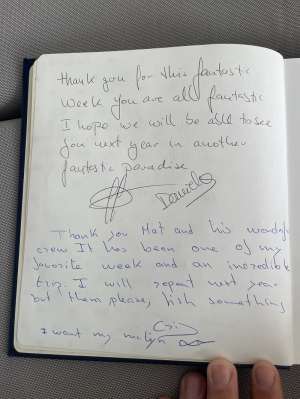 thank you for this fantastic
week you are all fantastic
I hope we will be able to see
you next year in another
fantastic paradise
Thank you Mat and his wonderful
crew It has been one of my
favorite week and an incredible
trip. I will repeat next year
but them please, fish something
I want my